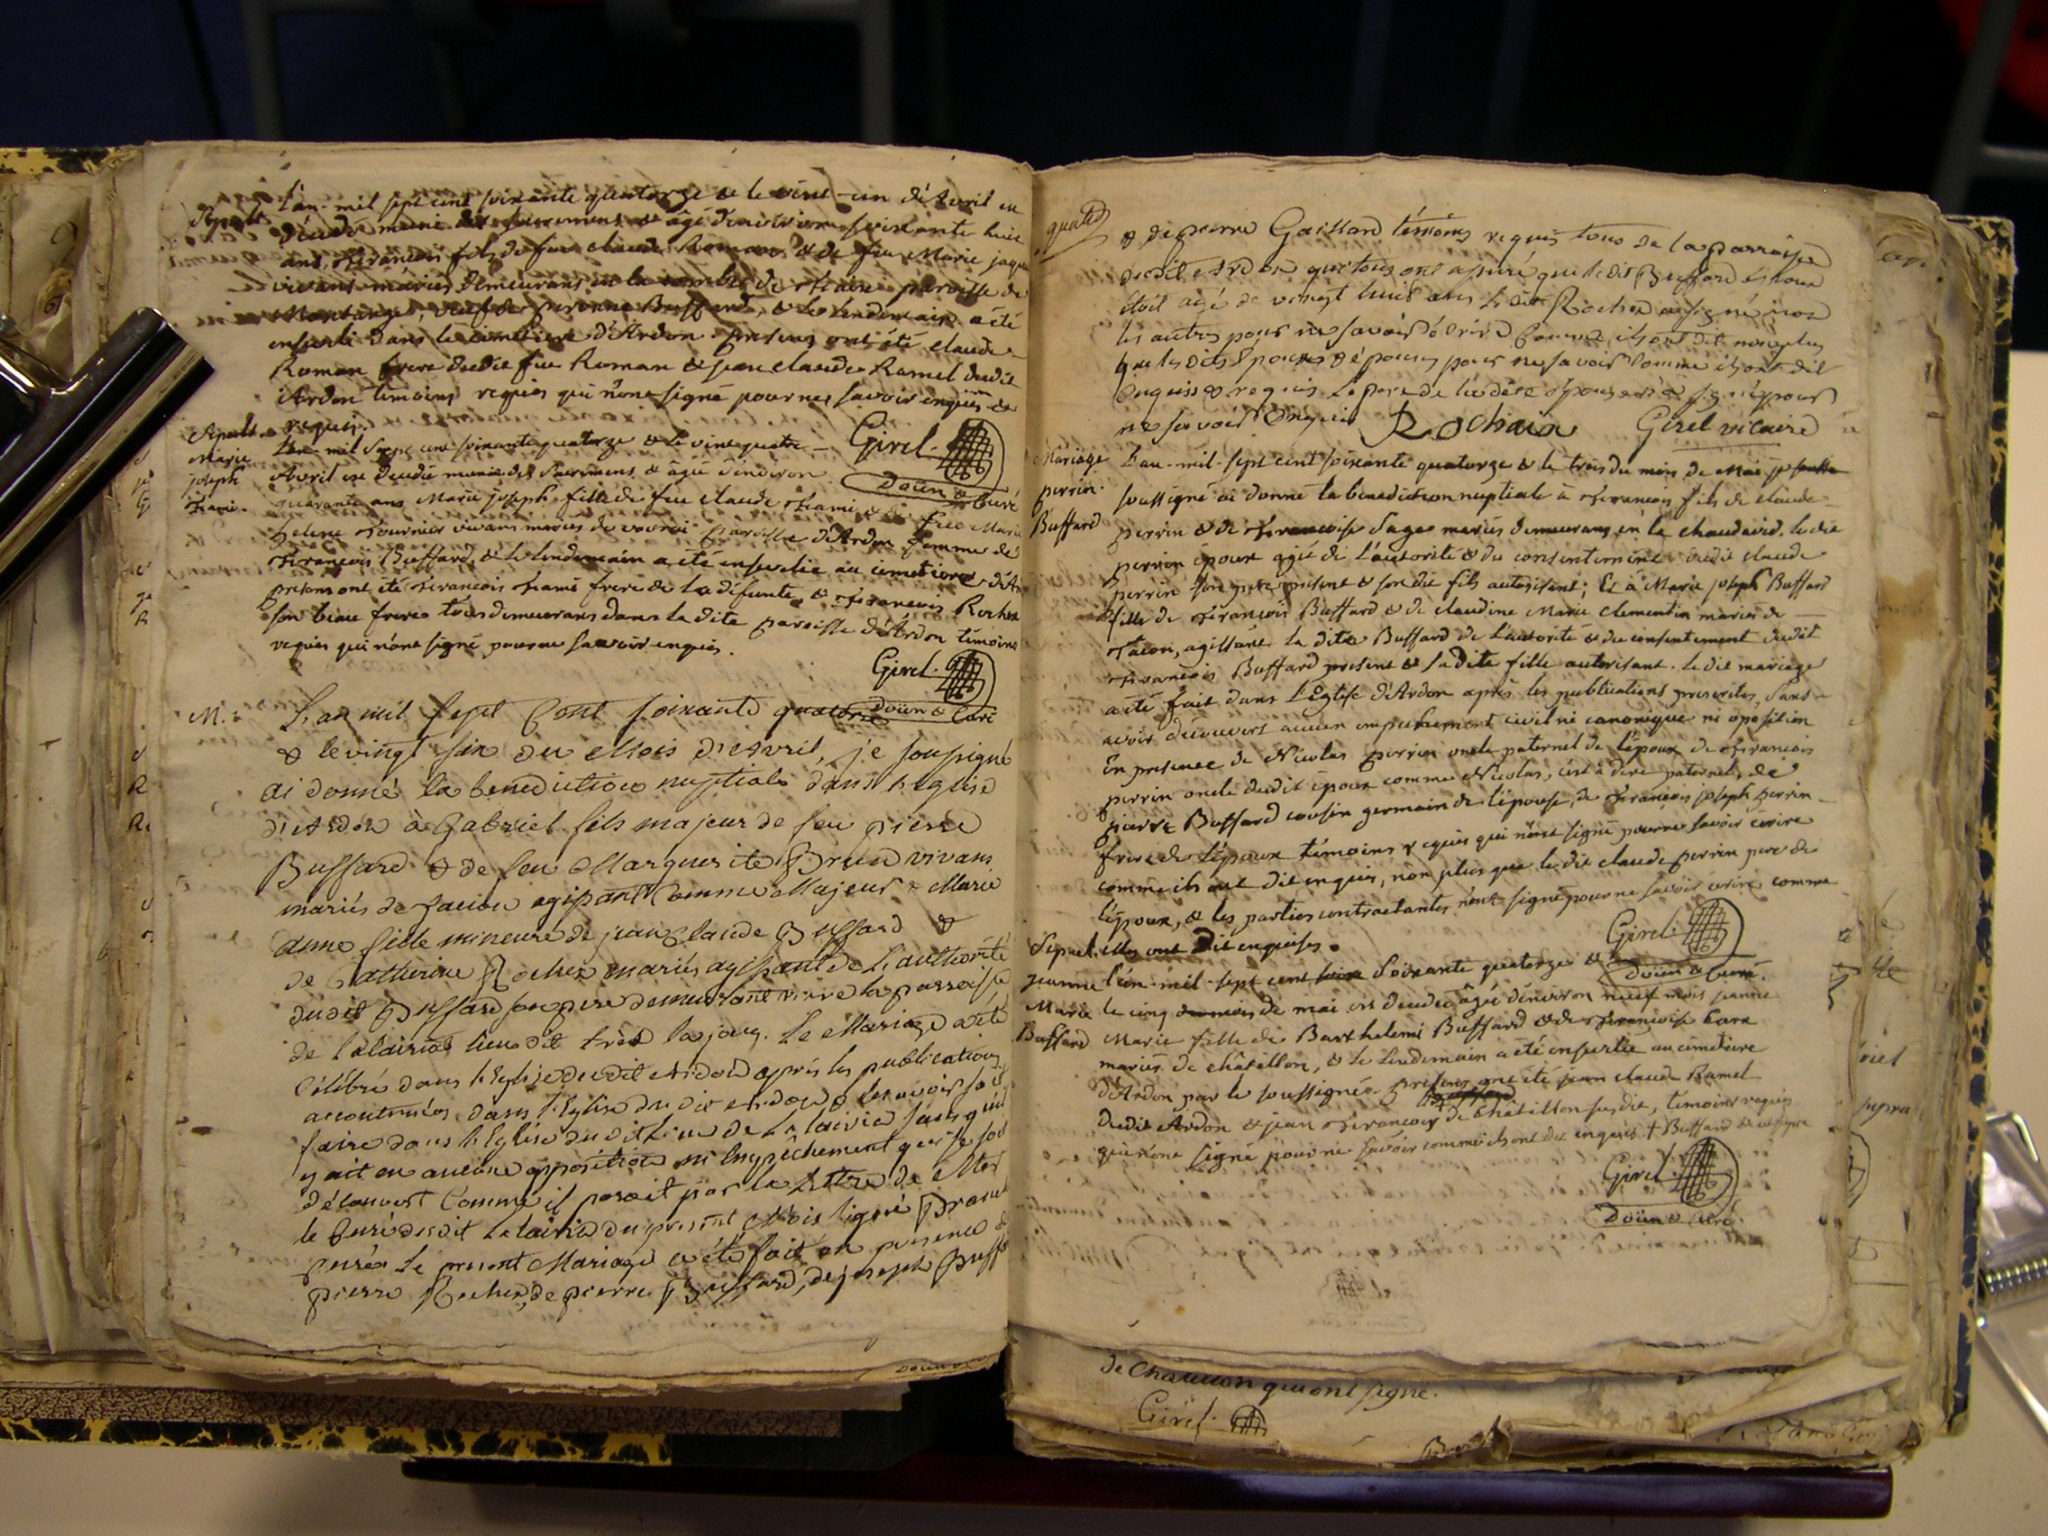 L'an mil sept cent soixante quatorze & le vint-un d'Avril en
Sepult.
décédé muni des sacremens & âgé d'environ soixante huit
ans François fils de feu claude Roman & de feu Marie
vivans mariés demeurans en la combe de paroisse de
Montanges, veuf de Buffard, & le lendemain a été
enseveli dans le cimetiere d'Ardon. presens ont été claude
Roman frere dudit feu Roman & jean claude Ramel dudit
Ardon témoins requis qui n'ont signé pour ne savoir enquis &
requis.
Girel.
Doün & Curé
Sepult.
Marie
joseph
Fami.
L'an mil sept cent soixante quatorze & le vint quatre
Avril est décédée munie des sacremens & âgée d'environ
quarante ans Marie joseph fille de feu claude Frami & de feu Marie
Helene Fournier vivans mariés de vouvrai paroisse d'Ardon femme de
François Buffard, & le lendemain a été ensevelie au cimetiere d'Ar
presens ont été François Frami frere de la défunte & François Rochex
son beau frere tous demeurans dans la dite paroisse d'Ardon témoins
requis qui n'ont signé pour ne savoir enquis.
Girel.
Doün & Curé
M.
L'an mil sept Cent soixante quatorze
& le vingt six du Mois d'Avril, je soussigné
ai donné la benediction nuptiale dans l'eglise
d'Ardon à Gabriel fils majeur de feu pierre
Buffard & de feu Marguerite Brun vivans
mariés de Tacon agissant Comme Majeur & Marie
anne fille mineure de jean Claude Buffard &
de Catherine Rochex mariés agissant de L'authorité
dudit Buffard son pere demeurant rière la parroisse
de Lalairiat lieu dit très la joug. Le Mariage a été
Célébré dans l'Eglise dudit Ardon après les publications
accoutumées dans l'Eglise du dit Ardon & les avoir fait
faire dans l'Eglise du dit Lieu de Lalairia sans qu'il
y ait eu aucune opposition ni Empêchement qui se soit
découvert Comme il paroit par la Lettre de Mes
le Curé dudit Lalairia du present Mois signé
curé. Le present Mariage a été fait en presence de
pierre Rochex, de pierre Buffard, de joseph Buff
& de pierre Gaillard témoins requis tous de la parroisse
dudit Ardon qui tous ont assuré que le dit Buffard Epoux
étoit agé de vingt huit ans le dit Rochex a signé non
les autres pour ne savoir écrire Comme ils ont dit non plus
que les dits Epoux & épouse pour ne savoir Comme ils ont dit
Enquis & requis. Le pere de la dite épouse n'a signé pour
ne savoir Enquis Rochaix Girel vicaire
Mariage
perrin.
Buffard
L'an mil sept cent soixante quatorze & le trois du mois de Mai je
soussigné ai donné la benediction nuptiale à François fils de claude
perrin & de Françoise Sage mariés demeurans en la chaudavid. le dit
perrin époux agit de l'autorité & du consentement dudit claude
perrin son pere present & son dit fils autorisant; Et à Marie joseph Buffard
fille de François Buffard & de claudine Marie Clementin mariés de
Tacon, agissant la dite Buffard de l'autorité & du consentement dudit
François Buffard present & sa dite fille autorisant. le dit mariage
a été fait dans l'Eglise d'Ardon après les publications prescrites, sans
avoir découvert aucun empechement civil ni canonique ni oposition
En presence de Nicolas perrin oncle paternel de l'époux de François
perrin oncle dudit époux comme Nicolas, c'est à dire paternel, de
pierre Buffard cousin germain de l'épouse, de François joseph perrin
frere de l'époux témoins requis qui n'ont signé pour ne savoir ecrire
comme ils ont dit enquis, non plus que le dit claude perrin pere de
l'époux, & les parties contractantes n'ont signé pour ne savoir écrire comme
elles ont dit enquises.
Girel.
Doün & Curé.
Sepul.
jeanne
Marie
Buffard
L'an mil sept cent soixante quatorze &
le cinq du mois de mai est décédée âgée d'environ neuf mois jeanne
Marie fille de Barthelemi Buffard & de Françoise
mariés de châtillon, & le lendemain a été ensevelie au cimetiere
d'Ardon par le soussigné. presens ont été jean claude Ramel
dudit Ardon & jean François de Châtillon susdit, témoins requis
qui n'ont signé pour ne savoir comme ils ont dit enquis † Buffard
Girel.
Doün & Curé.
de Chatillon qui ont signé.
Girel.